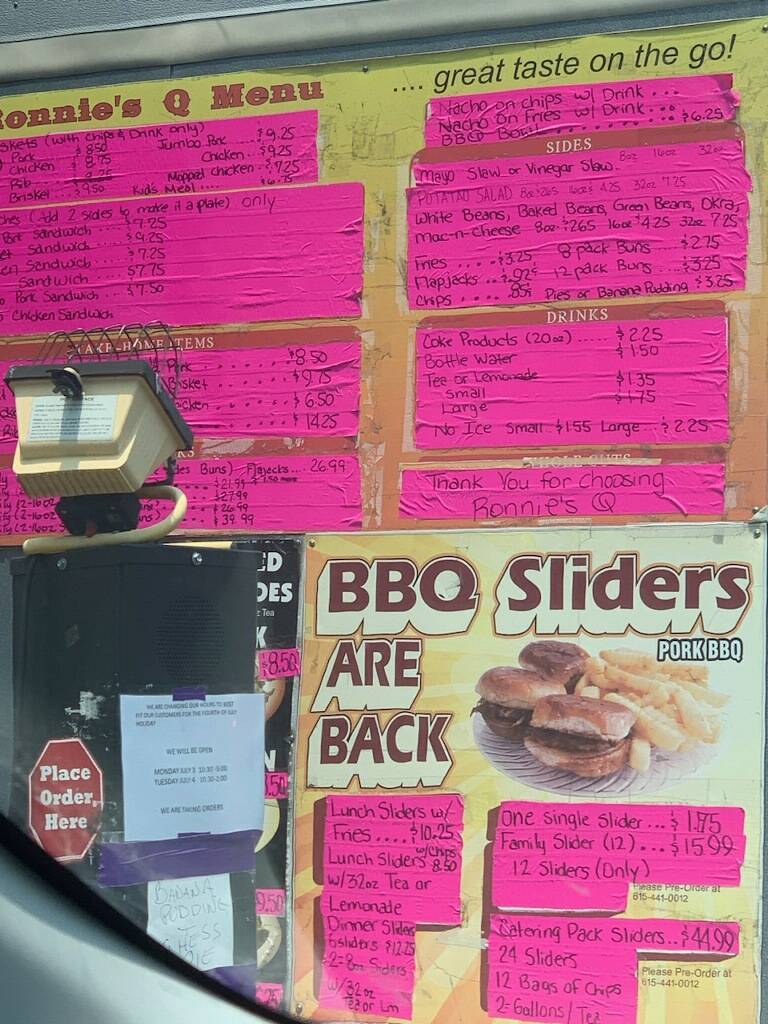 Ronnie's Q Menu
.... great taste on the go!
skets (with chips & Drink only)
Pork $8.50 Jumbo Pork $9.25
Chicken $8.75 Chicken $9.25
Rib $9.25 Mopped Chicken $7.25
Brisket $9.50 Kid's Meal
ches (Add 2 sides to make it a plate) only
Sandwich $7.25
et Sandwich $9.25
en Sandwich $7.25
Sandwich $7.75
Pork Sandwich $7.50
Chicken Sandwich
TAKE-HOME ITEMS
Pork $8.50
Brisket $9.75
icken $6.50
$14.25
des Buns) Flapjacks... 26.99
$21.99
$27.99
$26.99
$39.99
Nacho on chips w/ Drink ...
Nacho on Fries w/ Drink ....
BBQ Bowl $6.25
SIDES
Mayo Slaw or Vinegar Slaw 8oz 16oz 32oz
POTATAO SALAD 8oz $2.65 16oz $4.25 32oz 7.25
White Beans, Baked Beans, Green Beans, Okra,
Mac-n-Cheese 8oz $2.65 16oz $4.25 32oz 7.25
Fries $3.25 8 pack Buns $2.75
Flapjacks .92¢ 12 pack Buns $3.25
Chips .... .85¢ Pies or Banana Pudding $3.25
DRINKS
Coke Products (20oz) $2.25
Bottle Water $1.50
Tea or Lemonade
Small $1.35
Large $1.75
No Ice Small $1.55 Large... $2.25
WHOLE CUTS
Thank You for Choosing
Ronnie's Q
ED
DES
Tea
K
$8.50
N
.50
9.50
.25
WE ARE CHANGING OUR HOURS TO BEST
FIT OUR CUSTOMERS FOR THE FOURTH OF JULY
HOLIDAY
WE WILL BE OPEN
MONDAY JULY 3 10:30-5:00
TUESDAY JULY 4 10:30-2:00
WE ARE TAKING ORDERS
Place
Order
Here
BANANA
PUDDING
CHESS
PIE
BBQ Sliders
ARE
BACK
PORK BBQ
Lunch Sliders w/
Fries .... $10.25
Lunch Sliders w/Chips 8.50
w/32oz Tea or
Lemonade
Dinner Sliders
6 sliders $12.25
2-8oz Sides
w/32oz
Tea or Lm
One Single Slider ... $1.75
Family Slider (12) .. $15.99
12 Sliders (Only)
Please Pre-Order at
615-441-0012
Catering Pack Sliders.. $44.99
24 Sliders
12 Bags of Chips
2-Gallons/Tea
Please Pre-Order at
615-441-0012